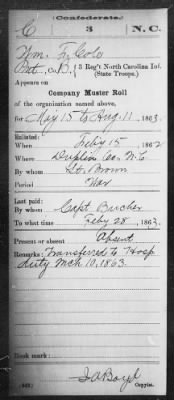 Confederate.
C 3 N.C.
Wm. F. Cole
Pvt., Co. B, 3 Reg't North Carolina Inf.
(State Troops.)
Appears on
Company Muster Roll
of the organization named above,
for May 15 to Aug 11, 1863.
Enlisted:
When Feby 15, 1862
Where Duplin Co. N.C.
By whom Lt. Brown
Period War
Last paid:
By whom Capt
To what time Feby 28, 1863.
Present or absent Absent
Remarks: Transferred to Hosp
duty Mch 10, 1863.
Book mark:
Copyist.